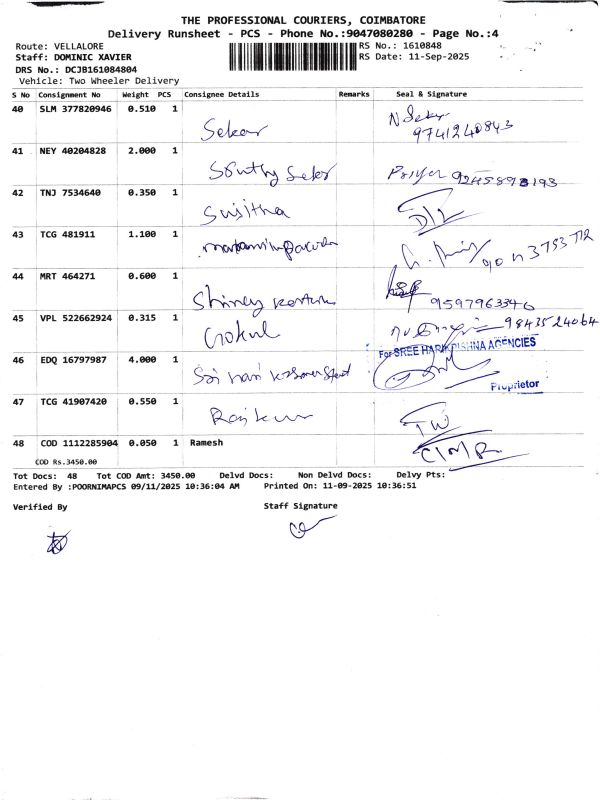 THE PROFESSIONAL COURIERS, COIMBATORE
Delivery Runsheet - PCS - Phone No.:9047080280 - Page No.:4
Route: VELLALORE
RS No.: 1610848
Staff: DOMINIC XAVIER
RS Date: 11-Sep-2025
DRS No.: DCJB161084804
Vehicle: Two Wheeler Delivery
S No Consignment No Weight PCS Consignee Details Remarks Seal & Signature
40 SLM 377820946 0.510 1
Sekar N Sekar
9741240843
41 NEY 40204828 2.000 1
Sekar Priya
42 TNJ 7534640 0.350 1
Sujitha
43 TCG 481911 1.100 1
44 MRT 464271 0.600 1
9597963346
45 VPL 522662924 0.315 1
Gokul 9843524064
46 EDQ 16797987 4.000 1
For SREE HARIKRISHNA AGENCIES
Sri hari
Proprietor
47 TCG 41907420 0.550 1
Rajkumar
48 COD 1112285904 0.050 1 Ramesh
COD Rs.3450.00
Tot Docs: 48 Tot COD Amt: 3450.00 Delvd Docs: Non Delvd Docs: Delvy Pts:
Entered By :POORNIMAPCS 09/11/2025 10:36:04 AM Printed On: 11-09-2025 10:36:51
Verified By Staff Signature